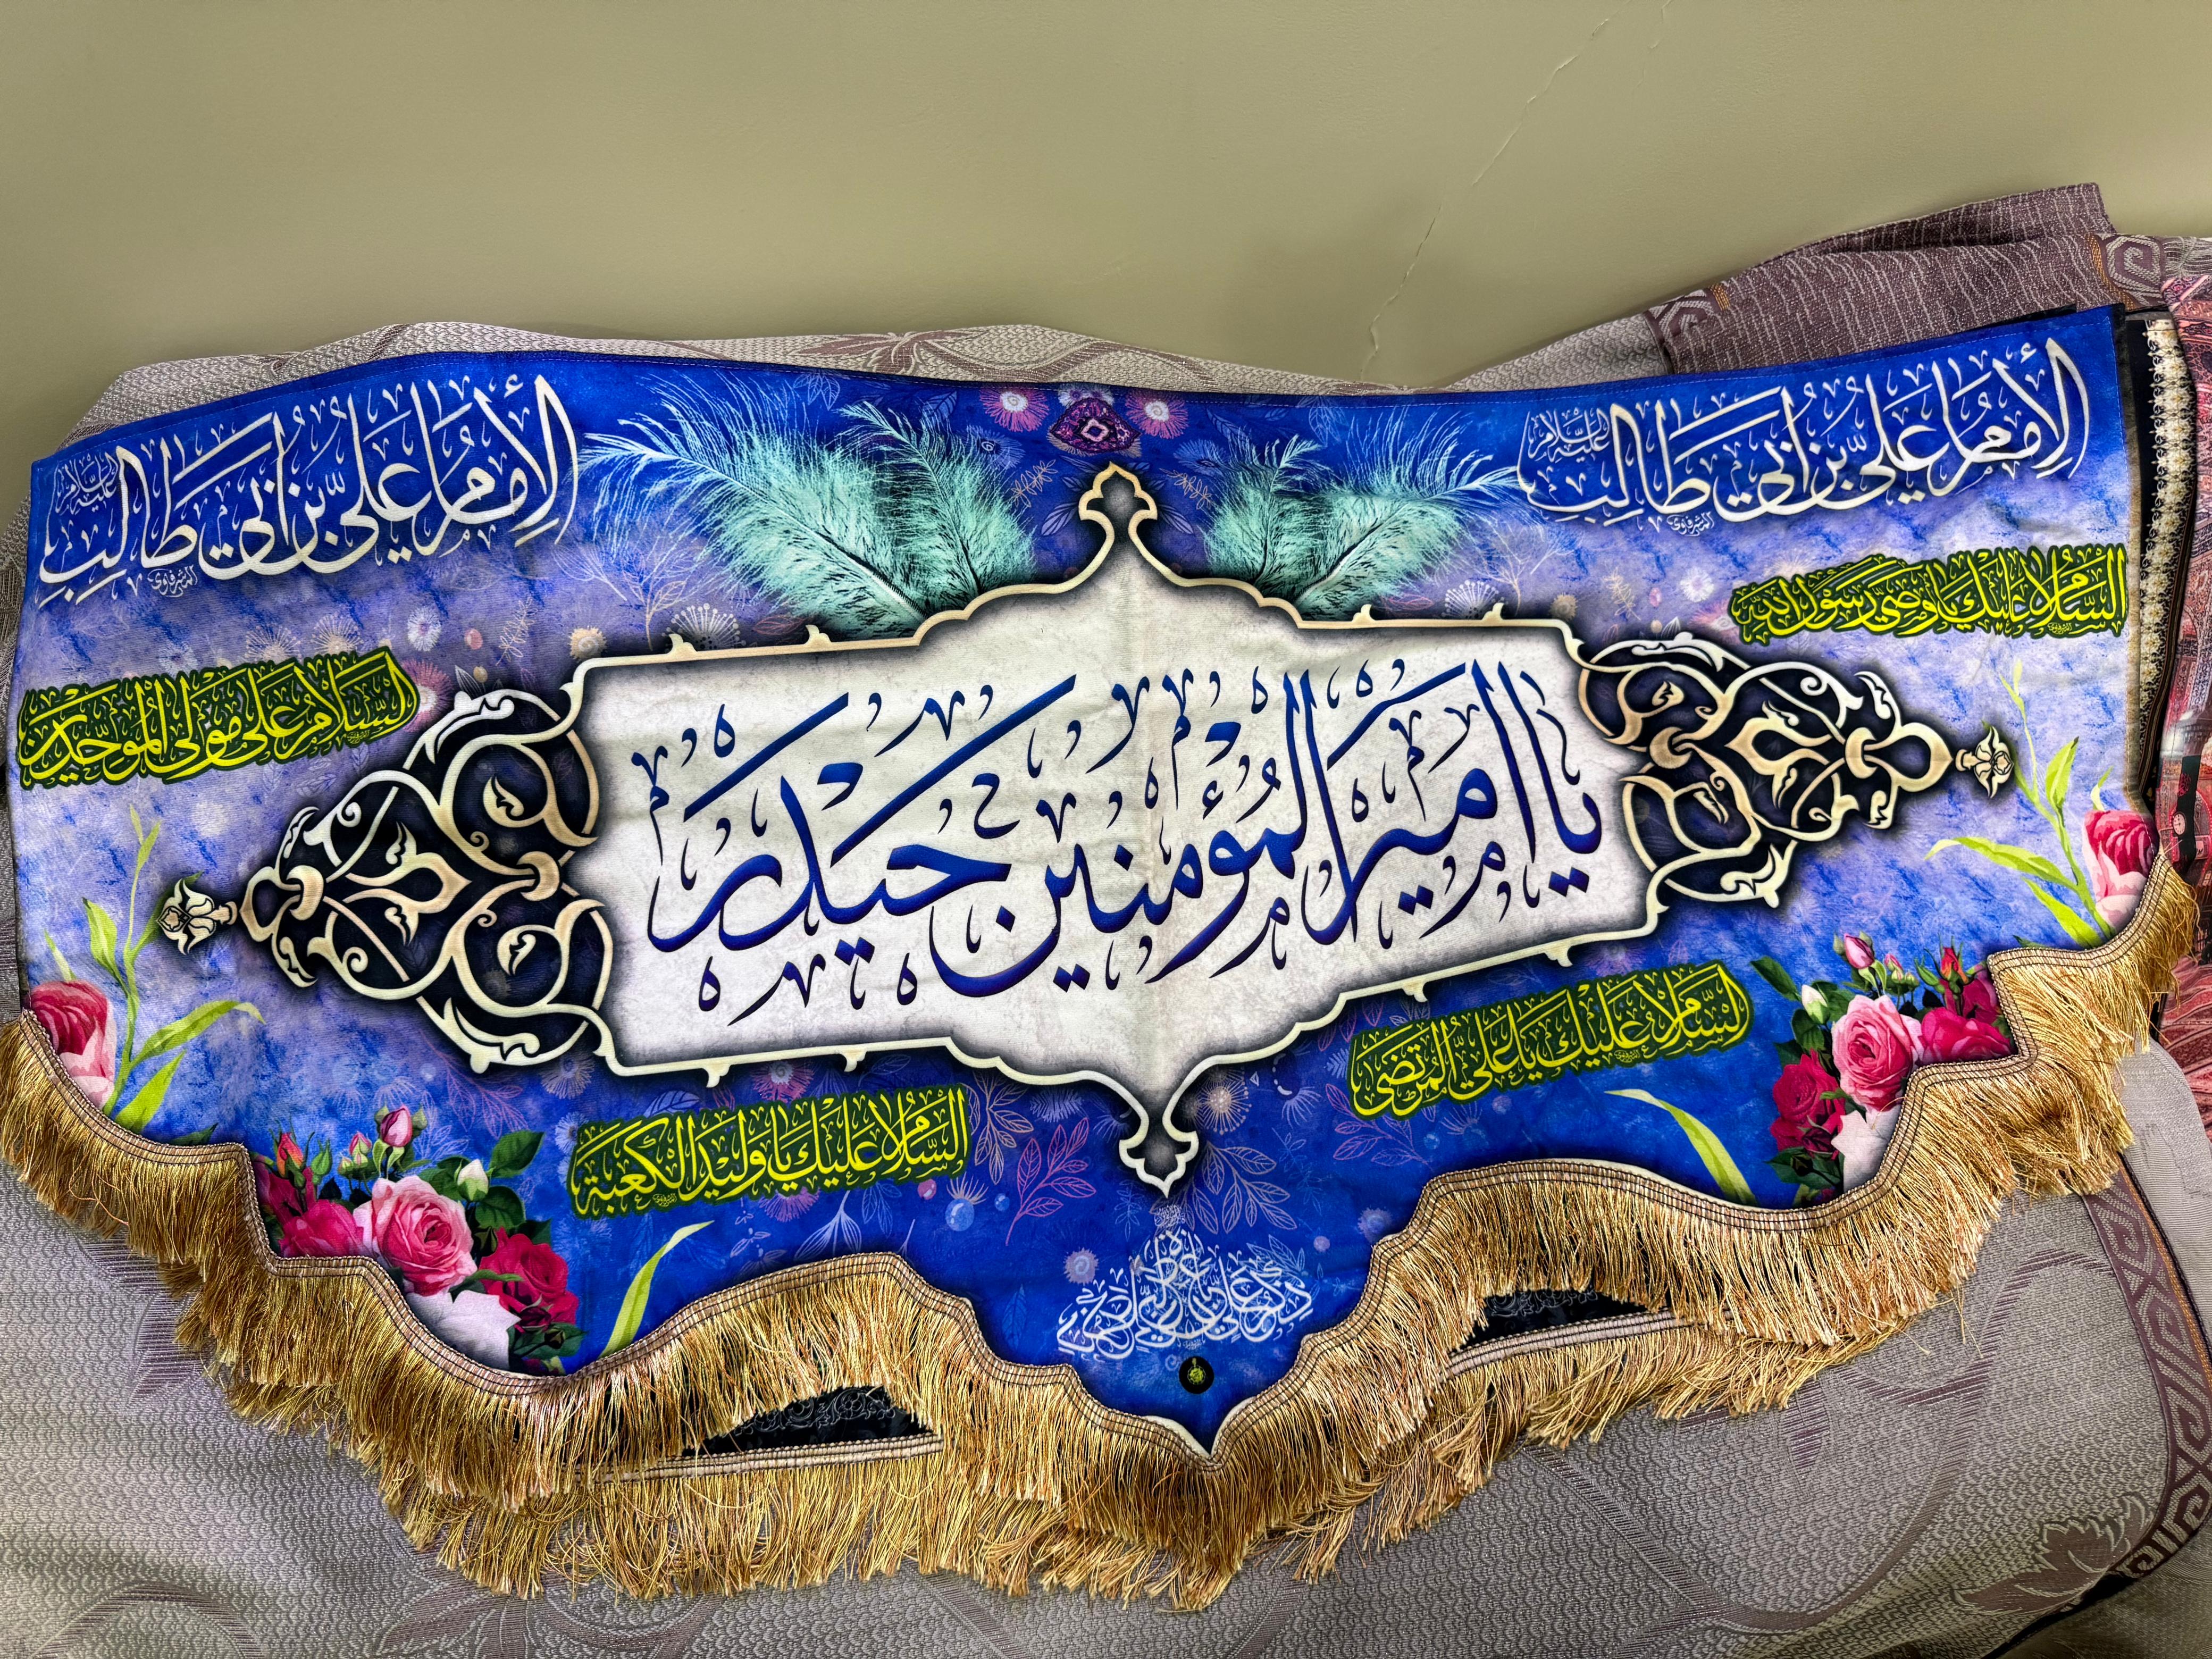 الإمام علي بن أبي طالب عليه السلام
الإمام علي بن أبي طالب عليه السلام
السلام عليك يا وصي رسول الله
السلام على مولى الموحدين
يا امير المؤمنين حيدر
السلام عليك يا علي المرتضى
السلام عليك يا وليد الكعبة